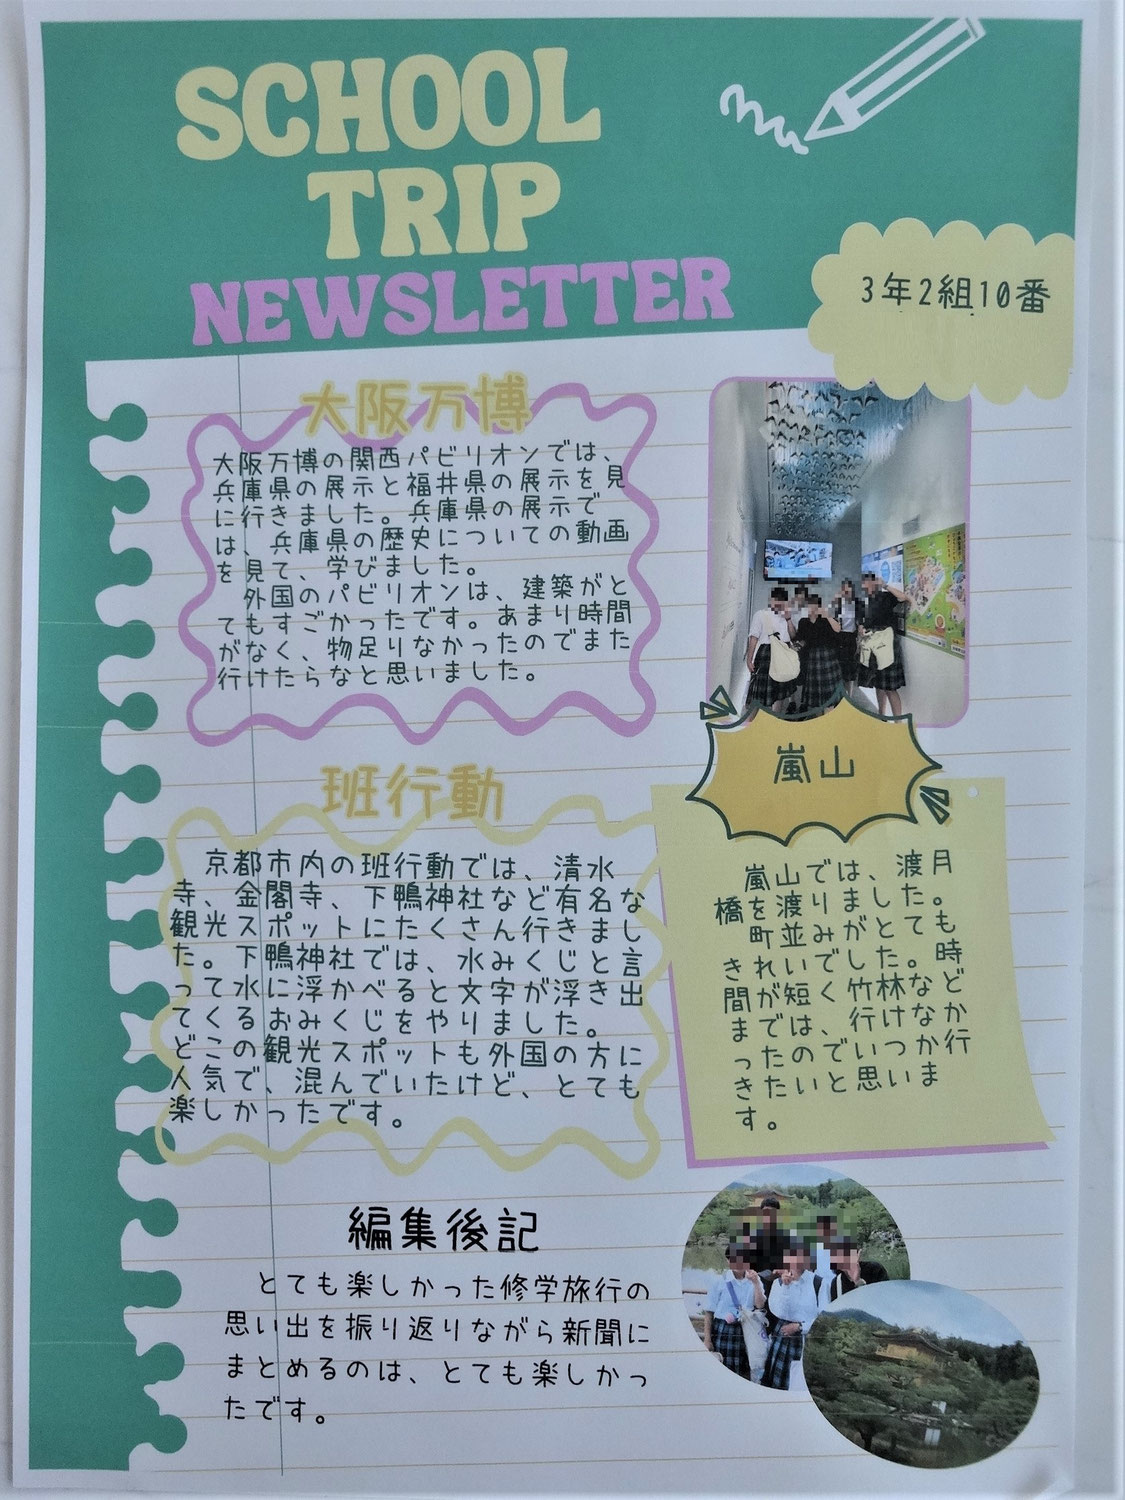 SCHOOL
TRIP
NEWSLETTER
3年2組10番
大阪万博
大阪万博の関西パビリオンでは、
兵庫県の展示と福井県の展示を見
に行きました。兵庫県の展示で
は、兵庫県の歴史についての動画
を見て、学びました。
外国のパビリオンは、建築がと
てもすごかったです。あまり時間
がなく、物足りなかったのでまた
行けたらなと思いました。
班行動
京都市内の班行動では、清水
寺、金閣寺、下鴨神社など有名な
観光スポットにたくさん行きまし
た。下鴨神社では、水みくじと言
って水に浮かべると文字が浮き出
てくるおみくじをやりました。
どこの観光スポットも外国の方に
人気で、混んでいたけど、とても
楽しかったです。
嵐山
嵐山では、渡月
橋を渡りました。
町並みがとても
きれいでした。時
間が短く竹林など
までは、行けなか
ったのでいつか行
きたいと思いま
す。
編集後記
とても楽しかった修学旅行の
思い出を振り返りながら新聞に
まとめるのは、とても楽しかっ
たです。